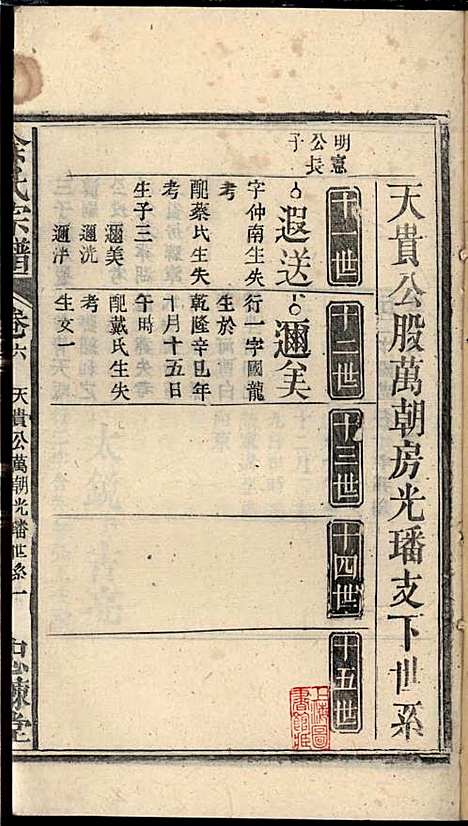 天貴公股萬朝房光璠支下世系
十一世
十二世
十三世
十四世
十五世
明憲
公長
子
遐送
字仲南生失
考
配蔡氏生失
考
生子三
邇美
邇洗
邇泮
邇美
行一字國龍
生於
乾隆辛巳年
十月十五日
午時
配戴氏生失
考
生女一
氏宗譜
卷六
天貴公萬朝光璠世系一
上海圖
書館藏